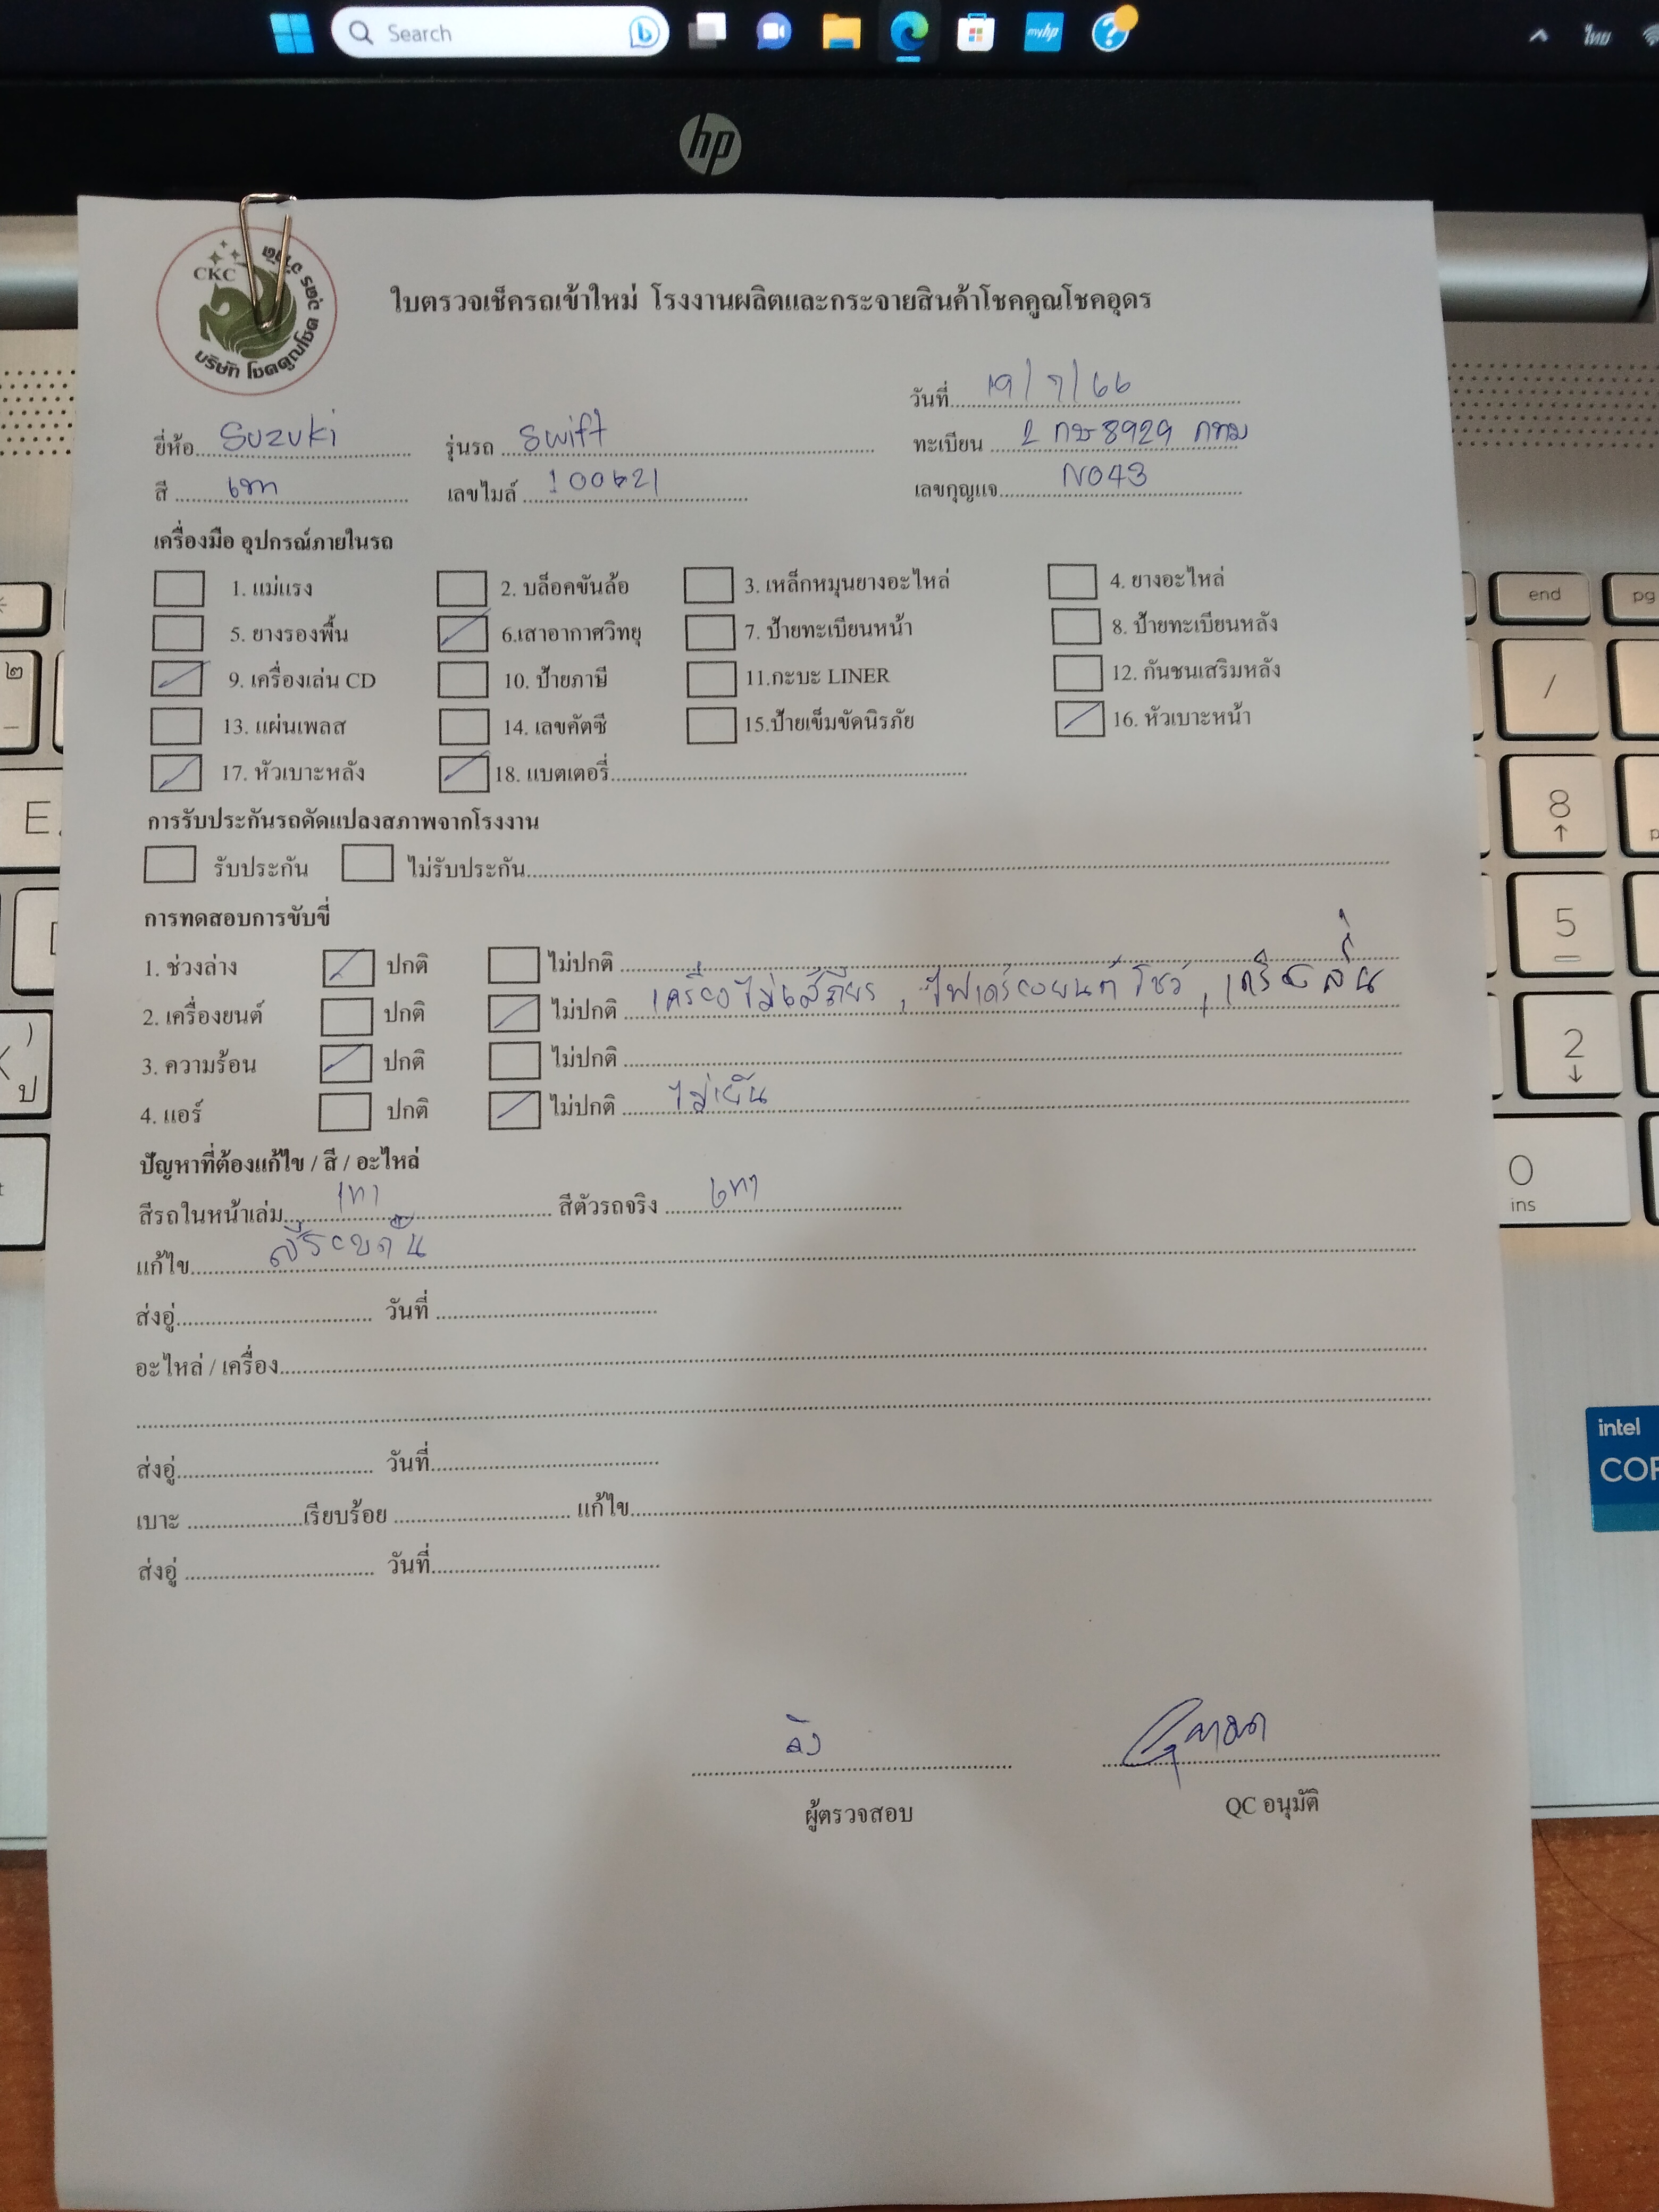 Search
myhp
ไทย
hp
CKC
บริษัท โชคคูณโชค อุดร จำกัด
ใบตรวจเช็ครถเข้าใหม่ โรงงานผลิตและกระจายสินค้าโชคคูณโชคอุดร
วันที่ 19/7/66
ยี่ห้อ Suzuki รุ่นรถ Swift ทะเบียน 2 กษ 8929 กทม
สี เทา เลขไมล์ 100621 เลขกุญแจ N043
เครื่องมือ อุปกรณ์ภายในรถ
1. แม่แรง 2. บล็อคขันล้อ 3. เหล็กหมุนยางอะไหล่ 4. ยางอะไหล่
5. ยางรองพื้น 6.เสาอากาศวิทยุ 7. ป้ายทะเบียนหน้า 8. ป้ายทะเบียนหลัง
9. เครื่องเล่น CD 10. ป้ายภาษี 11.กะบะ LINER 12. กันชนเสริมหลัง
13. แผ่นเพลส 14. เลขคัตซี 15.ป้ายเข็มขัดนิรภัย 16. หัวเบาะหน้า
17. หัวเบาะหลัง 18. แบตเตอรี่
การรับประกันรถดัดแปลงสภาพจากโรงงาน
รับประกัน ไม่รับประกัน
การทดสอบการขับขี่
1. ช่วงล่าง ปกติ ไม่ปกติ
2. เครื่องยนต์ ปกติ ไม่ปกติ เครื่องไม่เสถียร , ไฟเครื่องยนต์โชว์ , เครื่องสั่น
3. ความร้อน ปกติ ไม่ปกติ
4. แอร์ ปกติ ไม่ปกติ ไม่เย็น
ปัญหาที่ต้องแก้ไข / สี / อะไหล่
สีรถในหน้าเล่ม เทา สีตัวรถจริง เทา
แก้ไข สีรอบคัน
ส่งอู่ วันที่
อะไหล่ / เครื่อง
ส่งอู่ วันที่
เบาะ เรียบร้อย แก้ไข
ส่งอู่ วันที่
ผู้ตรวจสอบ QC อนุมัติ
end
pg
/
8
5
2
0
ins
intel
COR